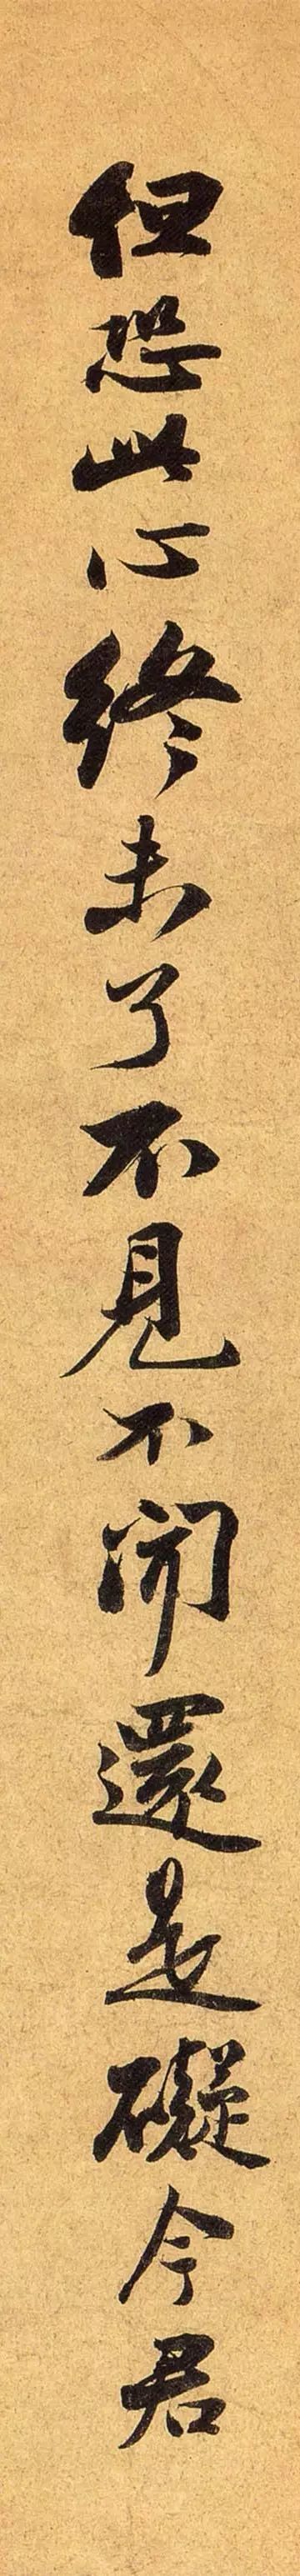 但恐此心終未了不見不聞還是礙今君